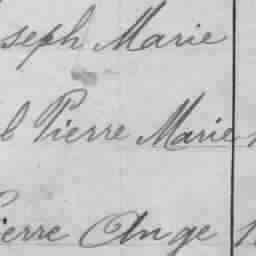 seph Marie
l Pierre Marie
ierre Ange